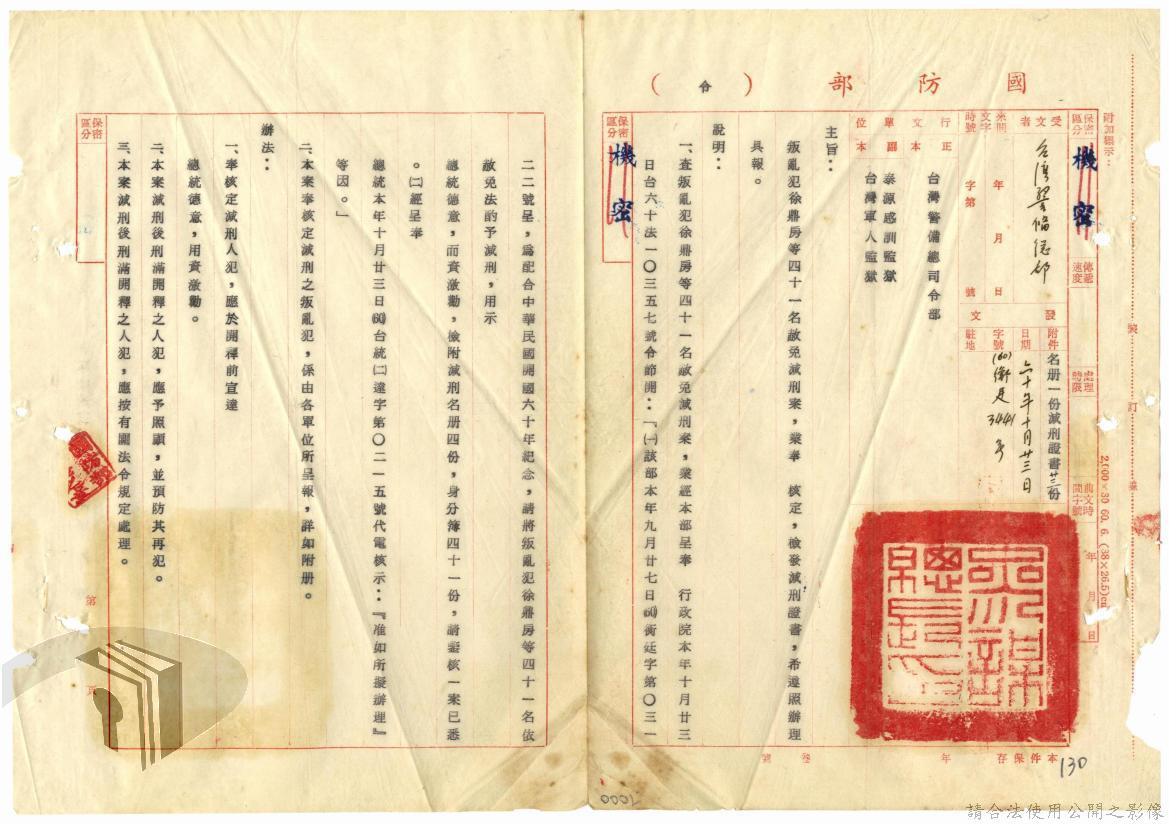 國防部(令)
附加標示：
保密區分
機密
傳遞速度
處理時限
前文時間字號
年 月 日
受文者
台灣警備總部
來文時間字號
年 月 日
字第 號
行文單位
正本
台灣警備總司令部
副本
泰源感訓監獄
台灣軍人監獄
發文
附件
名册一份減刑證書廿三份
日期
六十年十月廿三日
字號
(60)衡廷3441號
駐地
保密區分
機密
主旨：
叛亂犯徐鼎房等四十一名赦免減刑案，業奉 核定，檢發減刑證書，希遵照辦理
具報。
說明：
一、查叛亂犯徐鼎房等四十一名赦免減刑案，業經本部呈奉 行政院本年十月廿三
日台六十法一〇三五七號令節開：「㈠該部本年九月廿七日(60)衡廷字第〇三一
二二號呈，爲配合中華民國開國六十年紀念，請將叛亂犯徐鼎房等四十一名依
赦免法酌予減刑，用示
總統德意，而資激勵，檢附減刑名册四份，身分簿四十一份，請鑒核一案已悉
。㈡經呈奉
總統本年十月廿三日(60)台統㈡達字第〇二一五號代電核示：『准如所擬辦理』
等因。」
二、本案奉核定減刑之叛亂犯，係由各單位所呈報，詳如附册。
辦法：
一、奉核定減刑人犯，應於開釋前宣達
總統德意，用資激勵。
二、本案減刑後刑滿開釋之人犯，應予照顧，並預防其再犯。
三、本案減刑後刑滿開釋之人犯，應按有關法令規定處理。
保密區分
第 頁
裝 訂 線
2,000×30 60. 6. (38×26.5)cm
參謀總長之印
本件保存 年
130
0001
請合法使用公開之影像